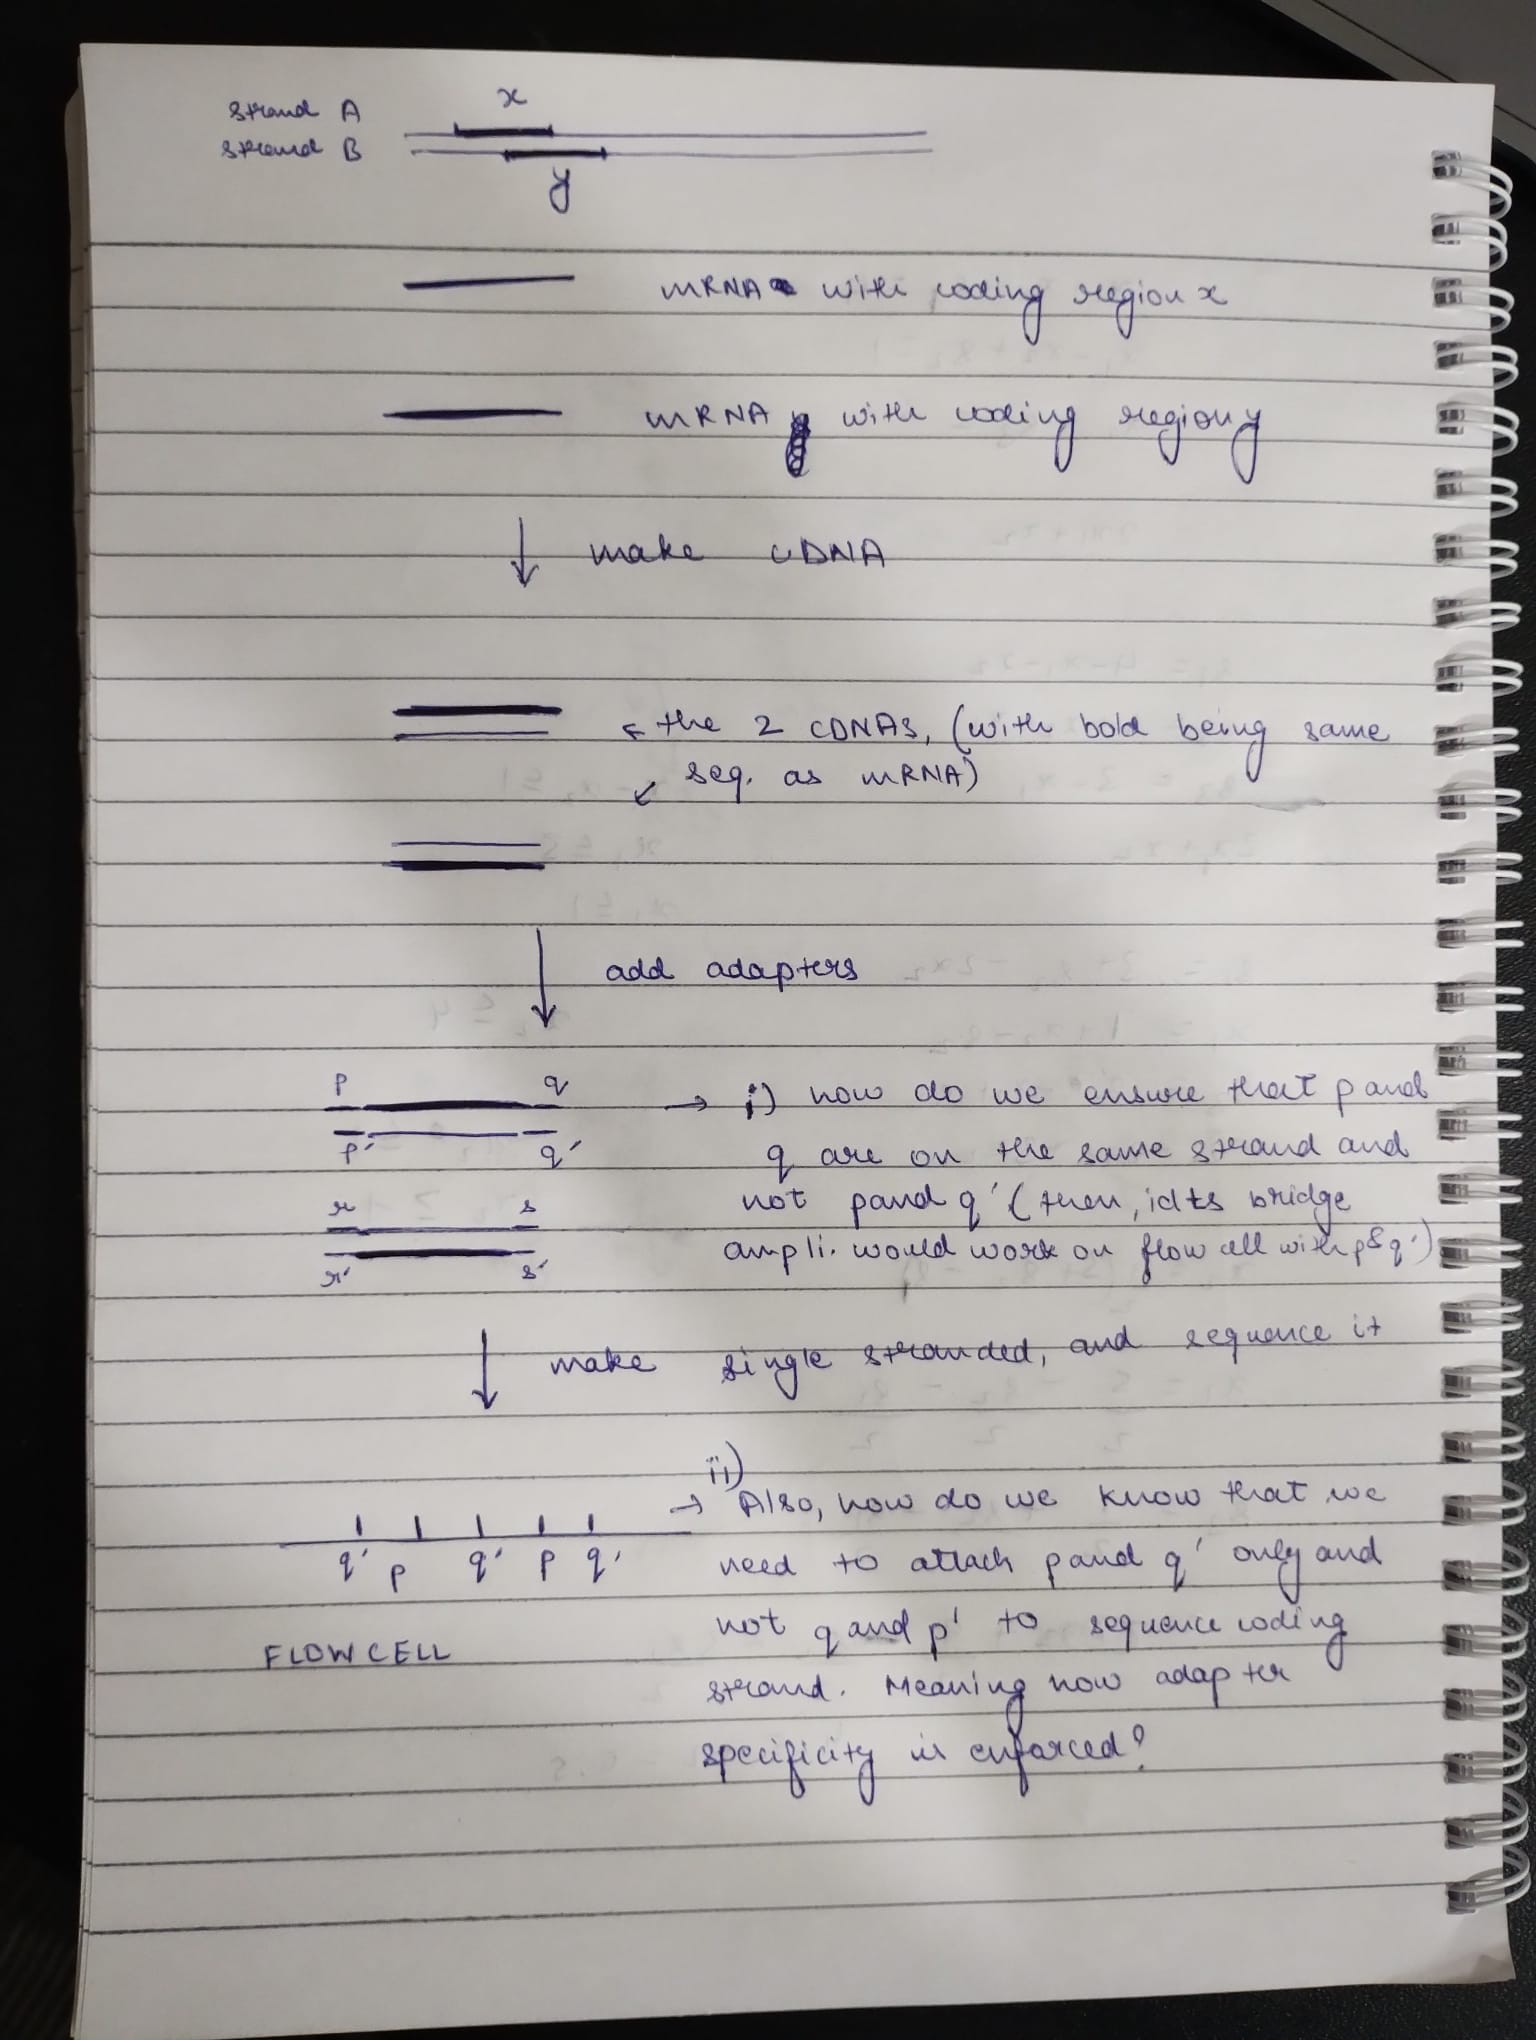 strand A
x
strand B
y
mRNA with coding region x
mRNA with coding region y
make cDNA
← the 2 cDNAs, (with bold being same
↙ seq. as mRNA)
add adapters
p q
→ i) how do we ensure that p and
p' q'
q are on the same strand and
r s
not p and q' (then, its bridge
ampli. would work on flow cell with p & q')
r' s'
make single stranded, and sequence it
ii)
→ Also, how do we know that we
q' p q' p q'
need to attach p and q' only and
not q and p' to sequence coding
FLOW CELL
strand. Meaning how adapter
specificity is enforced?